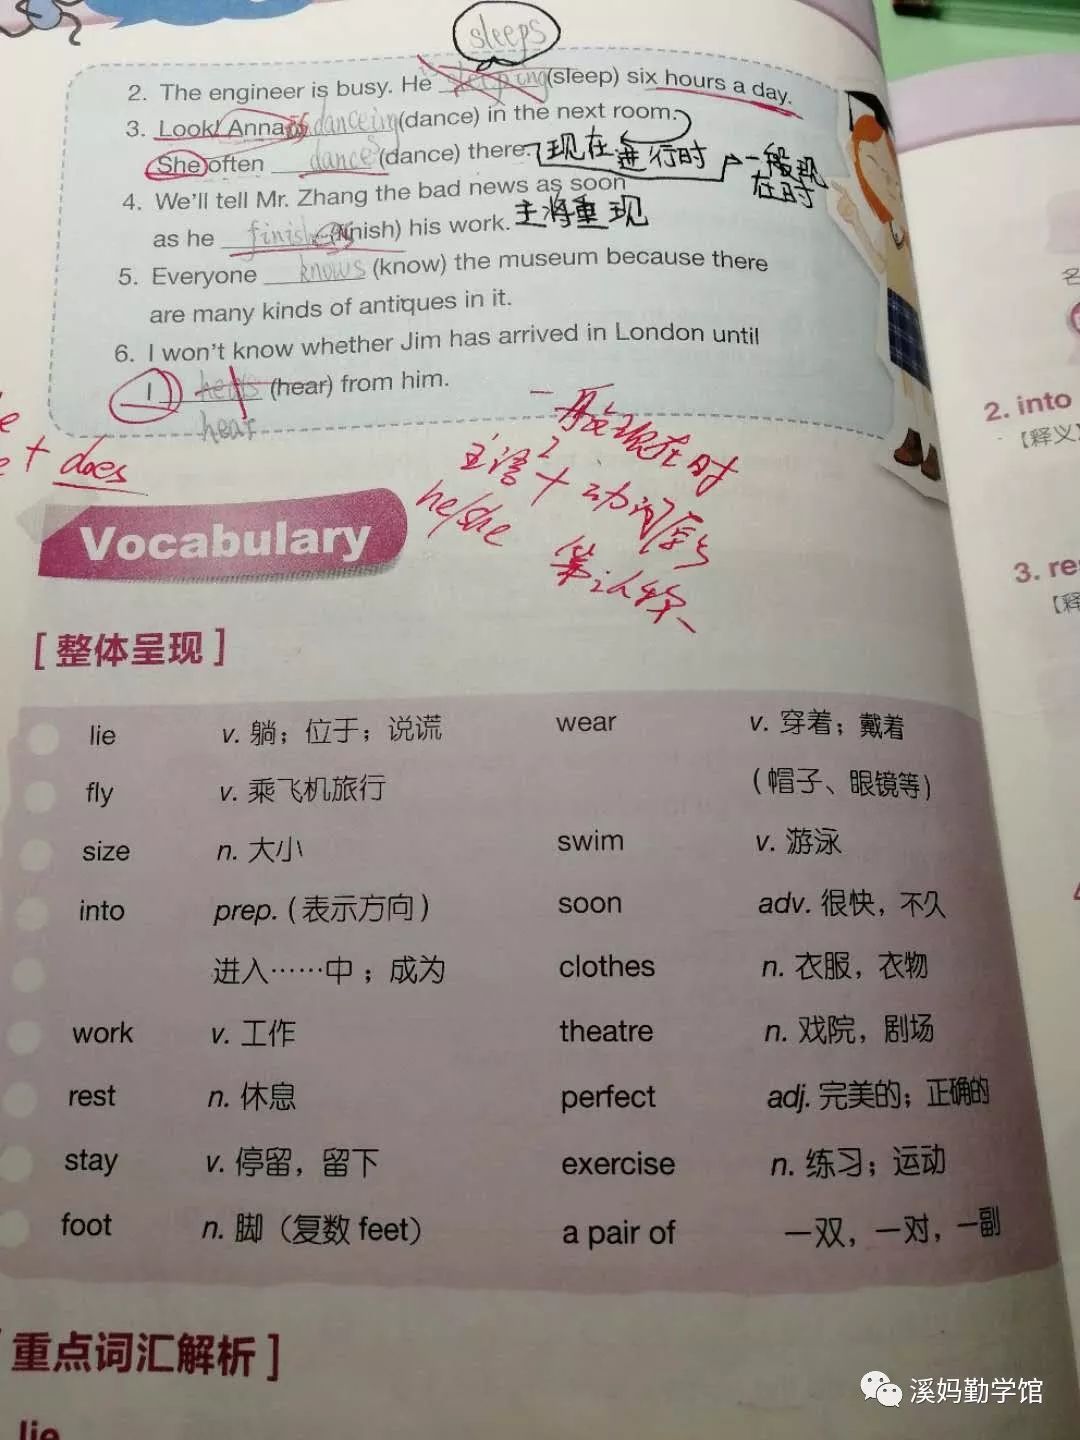 sleeps
2. The engineer is busy. He is sleeping (sleep) six hours a day.
3. Look! Anna is danceing (dance) in the next room.
She often dances (dance) there. 现在进行时 一般现在时
4. We'll tell Mr. Zhang the bad news as soon
as he finishes (finish) his work. 主将重现
5. Everyone knows (know) the museum because there
are many kinds of antiques in it.
6. I won't know whether Jim has arrived in London until
I hears (hear) from him.
hear
+ does
一般现在时
主语 + 动词原
he/she
第三人
Vocabulary
[整体呈现]
lie v. 躺；位于；说谎
fly v. 乘飞机旅行
size n. 大小
into prep. (表示方向)
进入……中；成为
work v. 工作
rest n. 休息
stay v. 停留，留下
foot n. 脚（复数 feet）
wear v. 穿着；戴着
(帽子、眼镜等)
swim v. 游泳
soon adv. 很快，不久
clothes n. 衣服，衣物
theatre n. 戏院，剧场
perfect adj. 完美的；正确的
exercise n. 练习；运动
a pair of 一双，一对，一副
[重点词汇解析]
lie
2. into
【释义】
3. re
【释
名
溪妈勤学馆